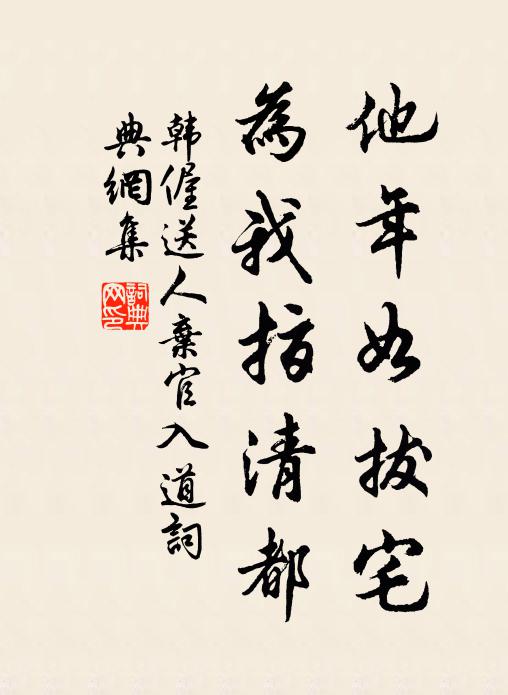 他年如拔宅
為我指清都
韩偓送人棄官入道詞
典網集
詞典
网印